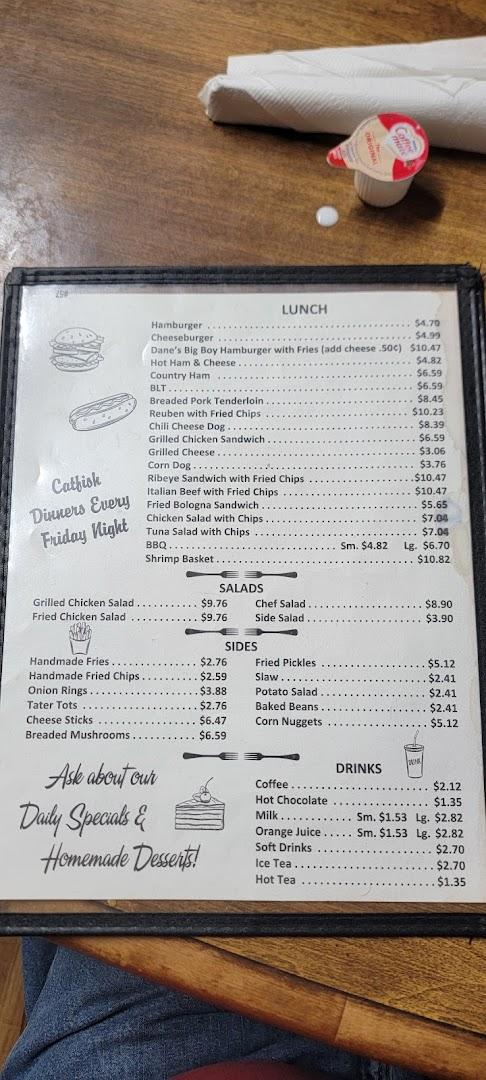 Coffee mate
ORIGINAL
LUNCH
Hamburger $4.70
Cheeseburger $4.99
Dane's Big Boy Hamburger with Fries (add cheese .50¢) $10.47
Hot Ham & Cheese $4.82
Country Ham $6.59
BLT $6.59
Breaded Pork Tenderloin $8.45
Reuben with Fried Chips $10.23
Chili Cheese Dog $8.39
Grilled Chicken Sandwich $6.59
Grilled Cheese $3.06
Corn Dog $3.76
Ribeye Sandwich with Fried Chips $10.47
Italian Beef with Fried Chips $10.47
Fried Bologna Sandwich $5.65
Chicken Salad with Chips $7.04
Tuna Salad with Chips $7.04
BBQ Sm. $4.82 Lg. $6.70
Shrimp Basket $10.82
Catfish
Dinners Every
Friday Night
SALADS
Grilled Chicken Salad $9.76
Fried Chicken Salad $9.76
Chef Salad $8.90
Side Salad $3.90
SIDES
Handmade Fries $2.76
Handmade Fried Chips $2.59
Onion Rings $3.88
Tater Tots $2.76
Cheese Sticks $6.47
Breaded Mushrooms $6.59
Fried Pickles $5.12
Slaw $2.41
Potato Salad $2.41
Baked Beans $2.41
Corn Nuggets $5.12
Ask about our
Daily Specials &
Homemade Desserts!
DRINKS
DRINK
Coffee $2.12
Hot Chocolate $1.35
Milk Sm. $1.53 Lg. $2.82
Orange Juice Sm. $1.53 Lg. $2.82
Soft Drinks $2.70
Ice Tea $2.70
Hot Tea $1.35